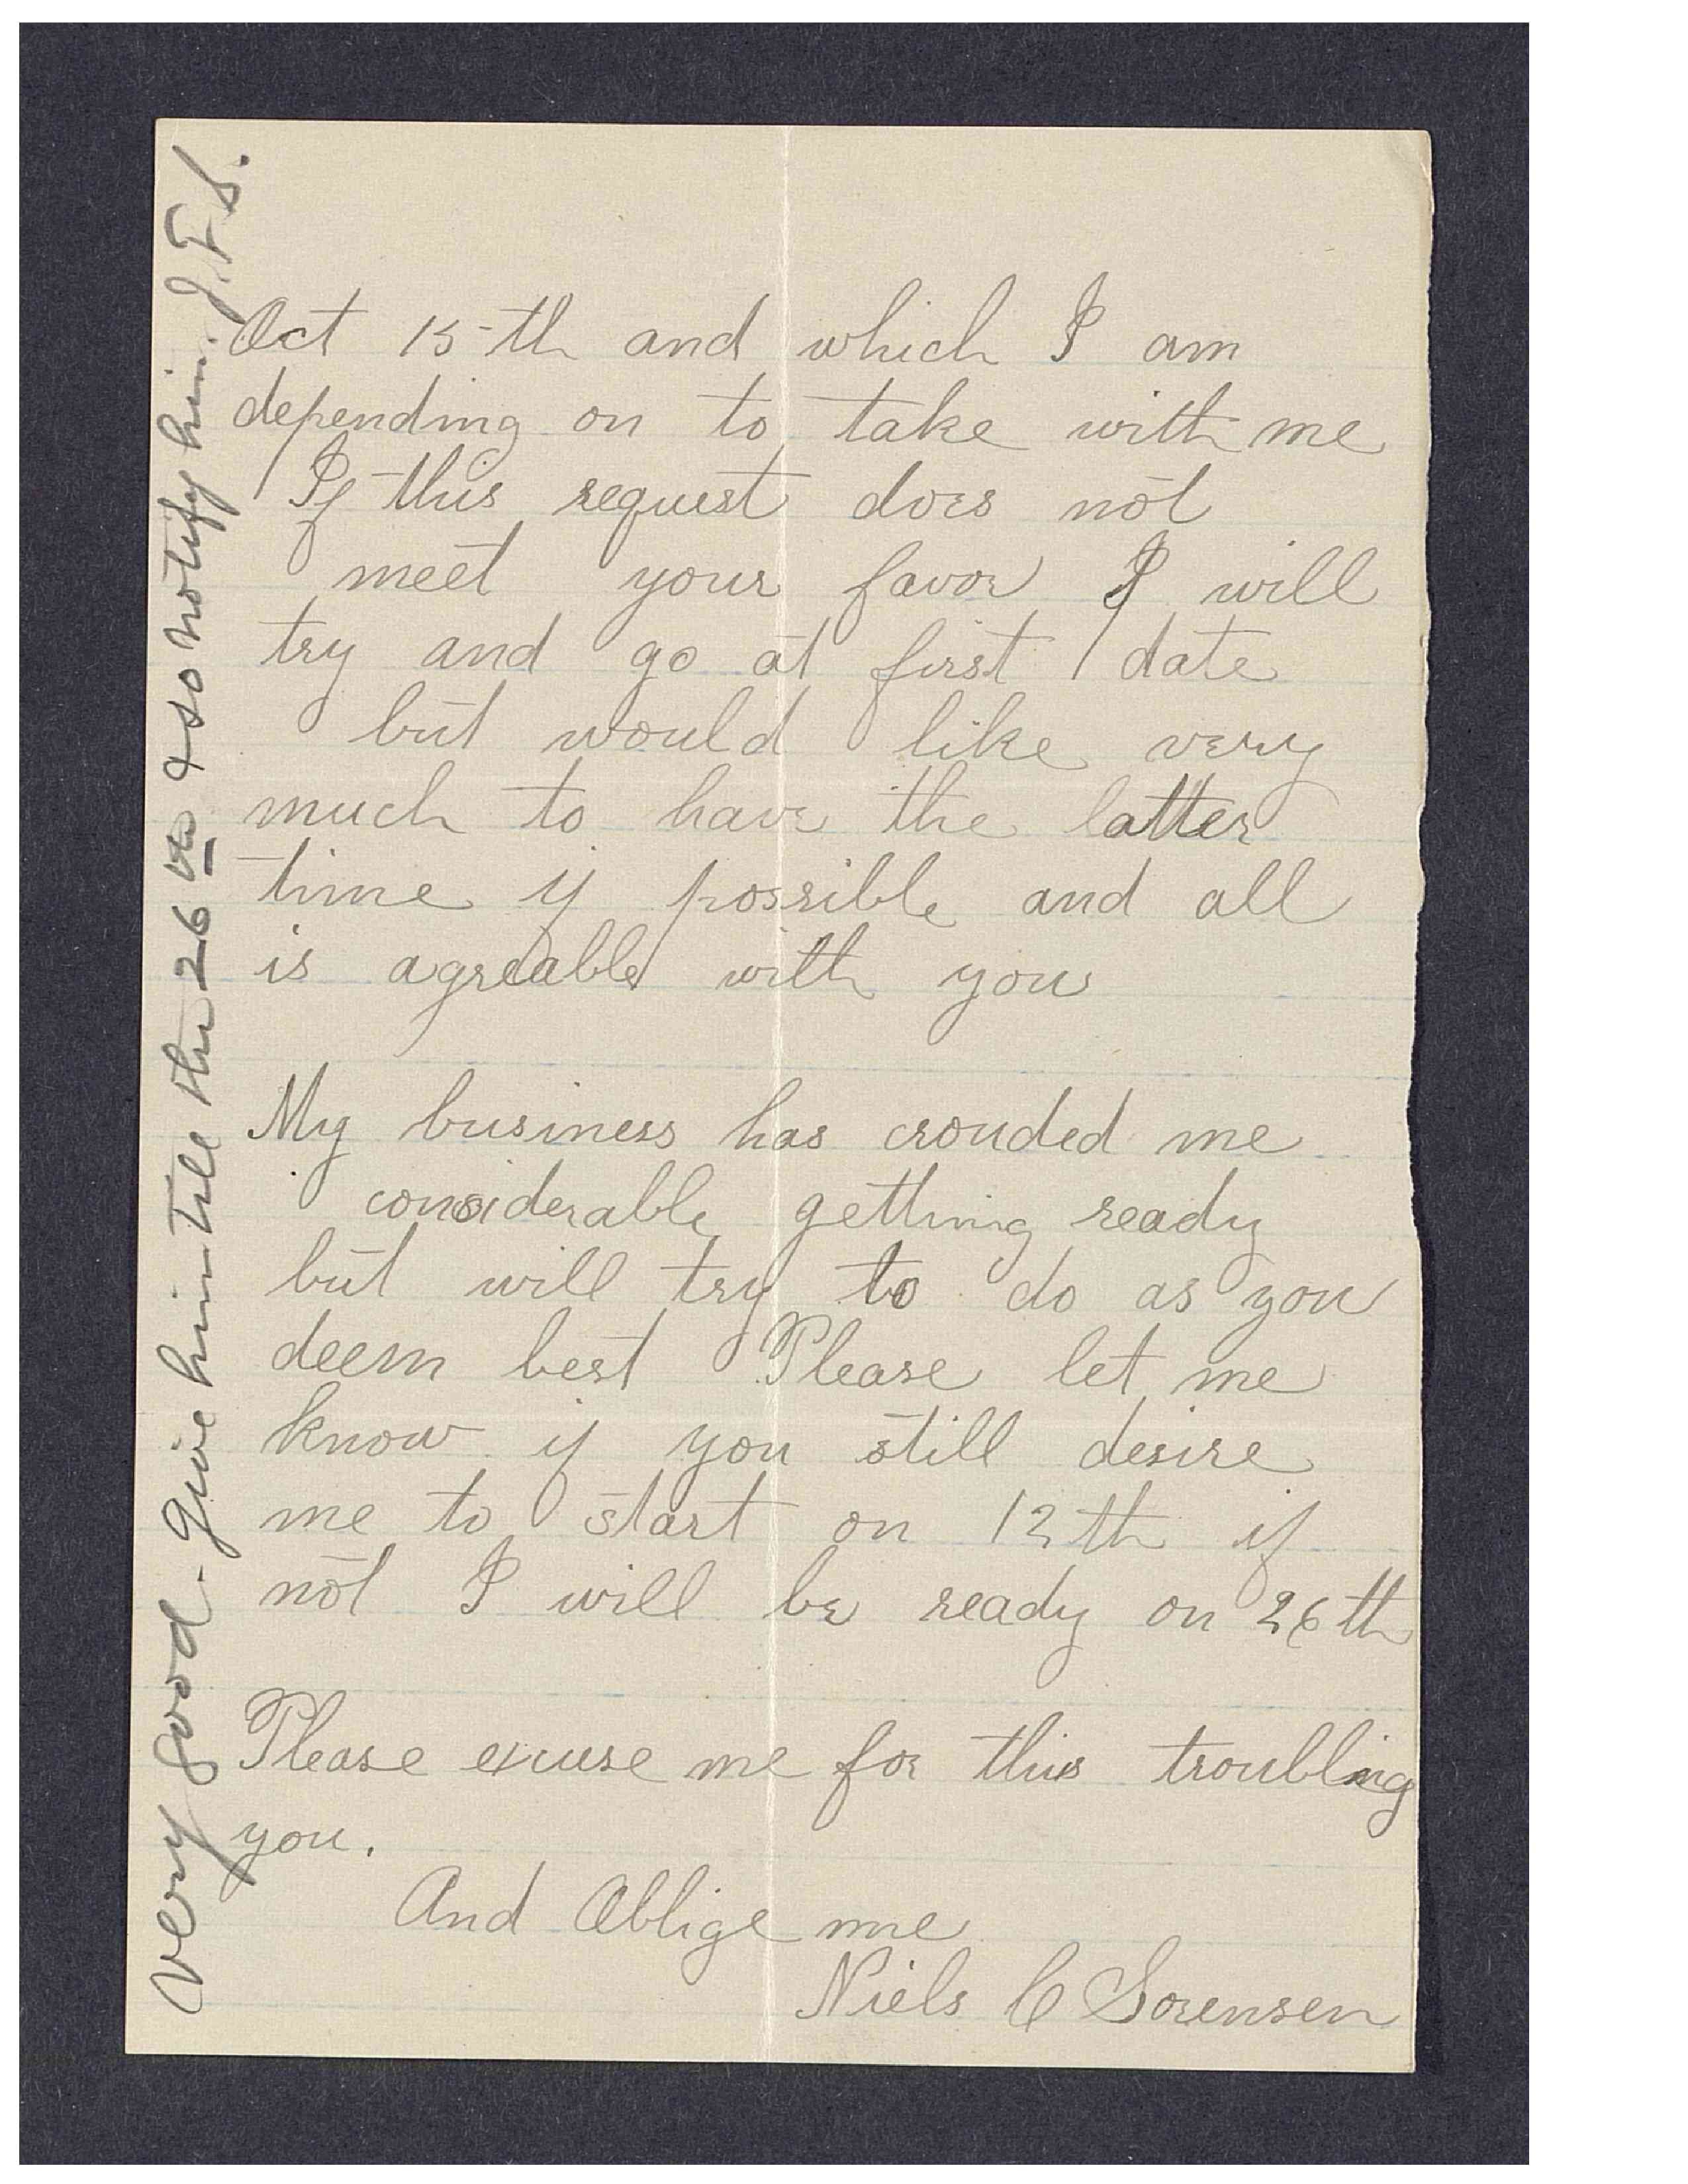 Oct 15-th and which I am
depending on to take with me
If this request does not
meet your favor I will
try and go at first date
but would like very
much to have the latter
time if possible and all
is agreable with you
My business has crouded me
considerable getting ready
but will try to do as you
deem best Please let me
know if you still desire
me to start on 12th if
not I will be ready on 26th
Please excuse me for this troubling
you.
And Oblige me
Niels C Sorensen
Very good - Give him till the 26th & so notify him. J. F. S.